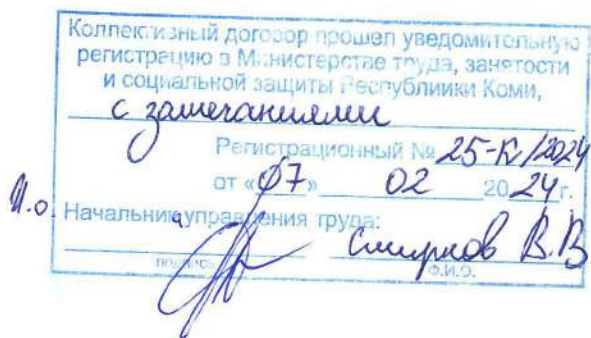 Коллективный договор прошел уведомительную
регистрацию в Министерстве труда, занятости
и социальной защиты Республиики Коми,
с замечаниями
Регистрационный № 25-К/2024
от «07» 02 2024г.
И.о. Начальник управления труда:
Смирнов В.В
подпись Ф.И.О.